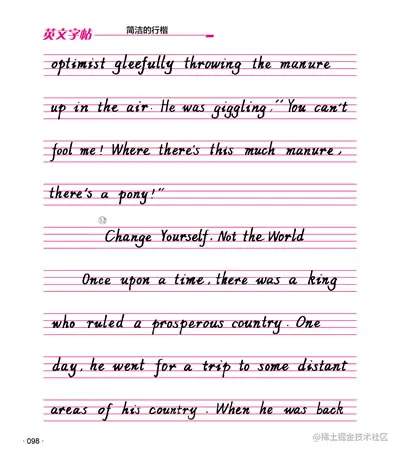 英文字帖
简洁的行楷
optimist gleefully throwing the manure
up in the air. He was giggling,"You can't
fool me! Where there's this much manure,
there's a pony!"
Change Yourself. Not the World
Once upon a time, there was a king
who ruled a prosperous country. One
day, he went for a trip to some distant
areas of his country. When he was back
·098·
@稀土掘金技术社区